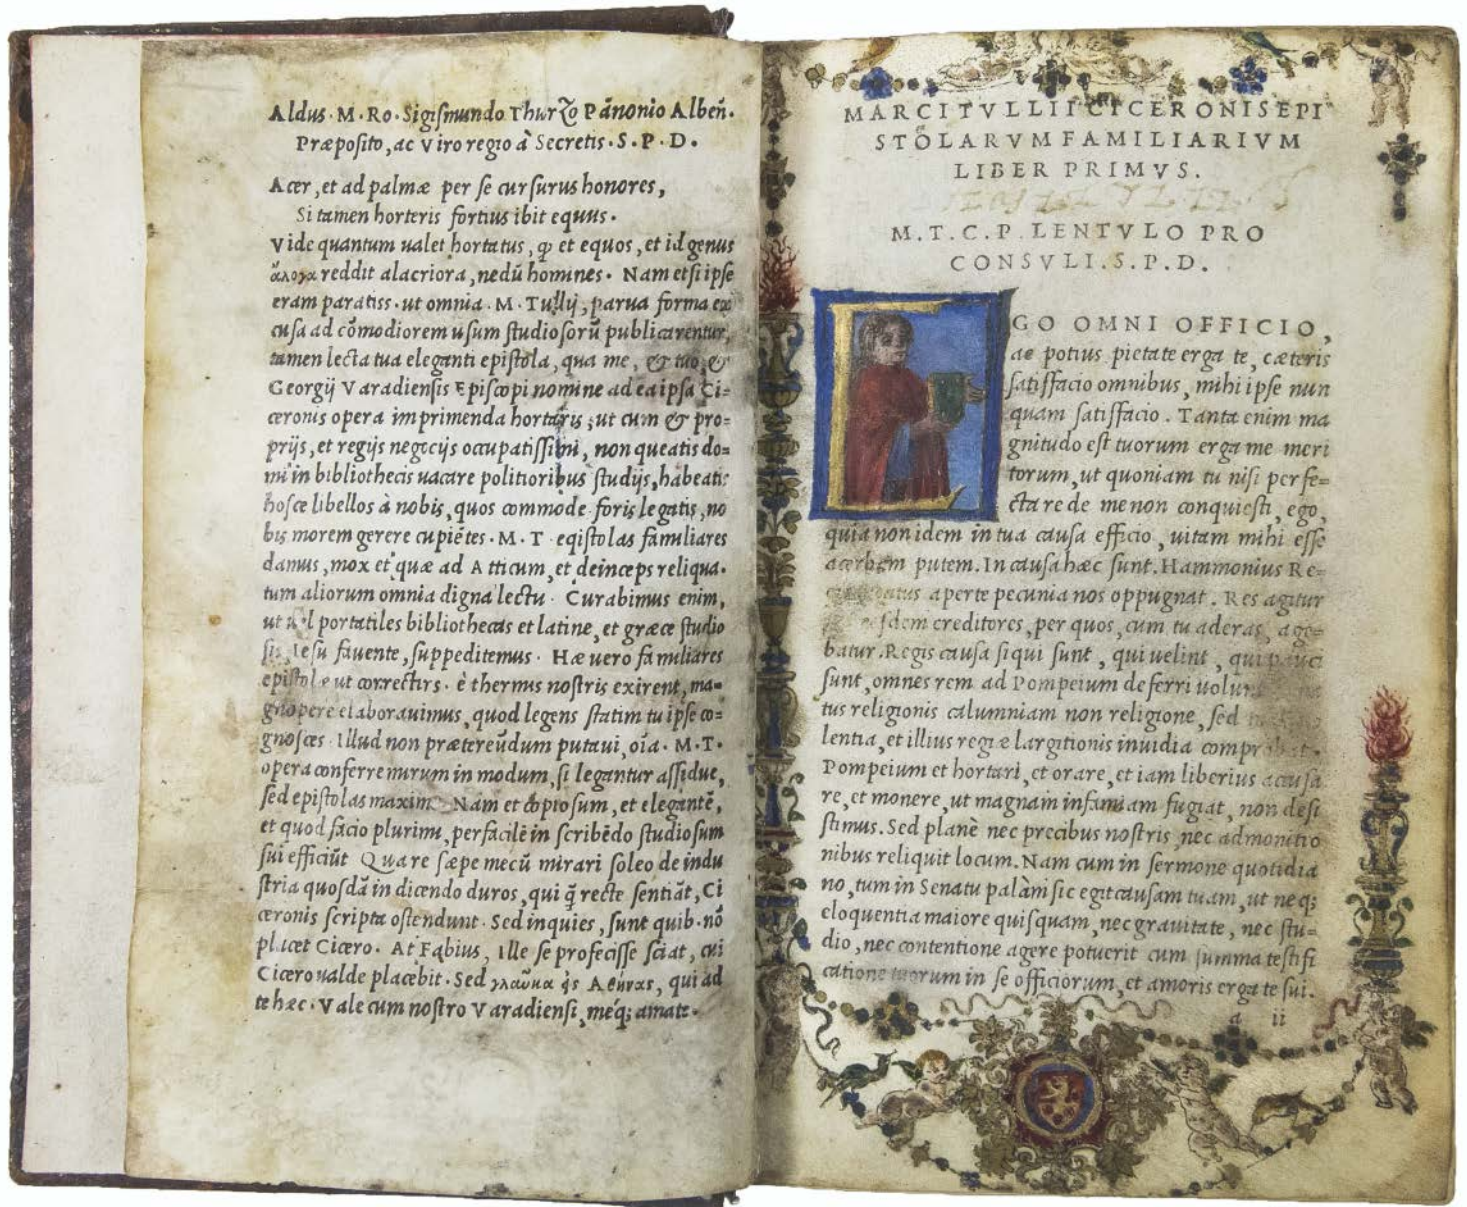 Aldus · M · Ro · Sigiſmundo Thurʒo Pãnonio Albeñ.
Præpoſito, ac Viro regio à Secretis · S · P · D ·
Acer, et ad palmæ per ſe curſurus honores,
Si tamen horteris fortius ibit equus ·
Vide quantum ualet hortatus, ꝙ et equos, et id genus
ἄλογα reddit alacriora, nedũ homines · Nam etſi ipſe
eram paratiss · ut omnia · M · Tullij, parua forma ex
cuſa ad cõmodiorem uſum ſtudioſorũ publicarentur,
tamen lecta tua eleganti epiſtola, qua me, & tuo, &
Georgij Varadienſis Epiſcopi nomine ad ea ipſa Ci=
ceronis opera imprimenda hortaris, ut cum & pro=
prijs, et regijs negocijs occupatiſſimi, non queatis do=
mi in bibliothecis uacare politioribus ſtudijs, habeatis
hoſce libellos à nobis, quos commode foris legatis, no
bis morem gerere cupiẽtes · M · T epiſtolas familiares
damus, mox et quæ ad Atticum, et deinceps reliqua ·
tum aliorum omnia digna lectu · Curabimus enim,
ut uel portatiles bibliothecas et latine, et græce ſtudio
ſis, Ieſu fauente, ſuppeditemus · Hæ uero familiares
epiſtolæ ut correctirs · è thermis noſtris exirent, ma=
gnopere elaborauimus, quod legens ſtatim tu ipſe co=
gnoſces · Illud non prætereũdum putaui, oĩa · M · T ·
opera conferre mirum in modum, ſi legantur aſſidue,
ſed epiſtolas maxime · Nam et copioſum, et elegantẽ,
et quod facio plurimi, perfacilè in ſcribẽdo ſtudioſum
ſui efficiũt Quare ſæpe mecũ mirari ſoleo de indu
ſtria quoſdã in dicendo duros, qui q̃ recte ſentiãt, Ci
ceronis ſcripta oſtendunt · Sed inquies, ſunt quib · nõ
placet Cicero · At Fabius, Ille ſe profeciſſe ſciat, cui
Cicero ualde placebit · Sed γλαῦκα εἰς Αθήνας, qui ad
te hæc · Vale cum noſtro Varadienſi, meq́; amate ·
MARCI TVLLII CICERONIS EPI
STOLARVM FAMILIARIVM
LIBER PRIMVS.
M. T. C. P. LENTVLO PRO
CONSVLI. S. P. D.
GO OMNI OFFICIO,
ac potius pietate erga te, cæteris
ſatiſfacio omnibus, mihi ipſe nun
quam ſatiſfacio. Tanta enim ma
gnitudo eſt tuorum erga me meri
torum, ut quoniam tu niſi perfe=
cta re de me non conquieſti, ego,
quia non idem in tua cauſa efficio, uitam mihi eſſe
acerbam putem. In cauſa hæc ſunt. Hammonius Re=
aperte pecunia nos oppugnat. Res agitur
creditores, per quos, cum tu aderas, age=
batur. Regis cauſa ſi qui ſunt, qui uelint, qui pauci
ſunt, omnes rem ad Pompeium deferri uolunt
tus religionis calumniam non religione, ſed
lentia, et illius regiæ largitionis inuidia comprobat.
Pompeium et hortari, et orare, et iam liberius accuſa
re, et monere, ut magnam infamiam fugiat, non deſi
ſtimus. Sed planè nec precibus noſtris, nec admonitio
nibus reliquit locum. Nam cum in ſermone quotidia
no, tum in Senatu palàm ſic egit cauſam tuam, ut neq;
eloquentia maiore quiſquam, nec grauitate, nec ſtu=
dio, nec contentione agere potuerit cum ſumma teſtifi
catione tuorum in ſe officiorum, et amoris erga te ſui.
a ii